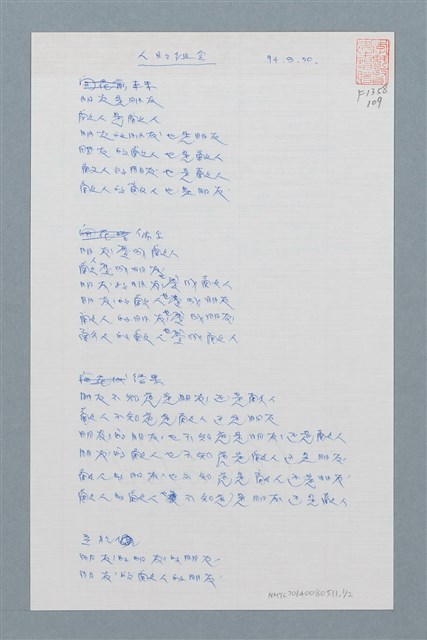 人的組合 94.3.30.
F1358
109
本來
朋友是朋友
敵人是敵人
朋友的朋友也是朋友
朋友的敵人也是敵人
敵人的朋友也是敵人
敵人的敵人也是朋友
後來
朋友變成敵人
敵人變成朋友
朋友的朋友也變成敵人
朋友的敵人也變成朋友
敵人的朋友也變成朋友
敵人的敵人也變成敵人
結果
朋友不知道是朋友還是敵人
敵人不知道是敵人還是朋友
朋友的朋友也不知道是朋友還是敵人
朋友的敵人也不知道是敵人還是朋友
敵人的朋友也不知道是敵人還是朋友
敵人的敵人不知道是朋友還是敵人
至於
朋友的朋友的朋友
朋友的敵人的朋友
NMTL20140080511,1/2